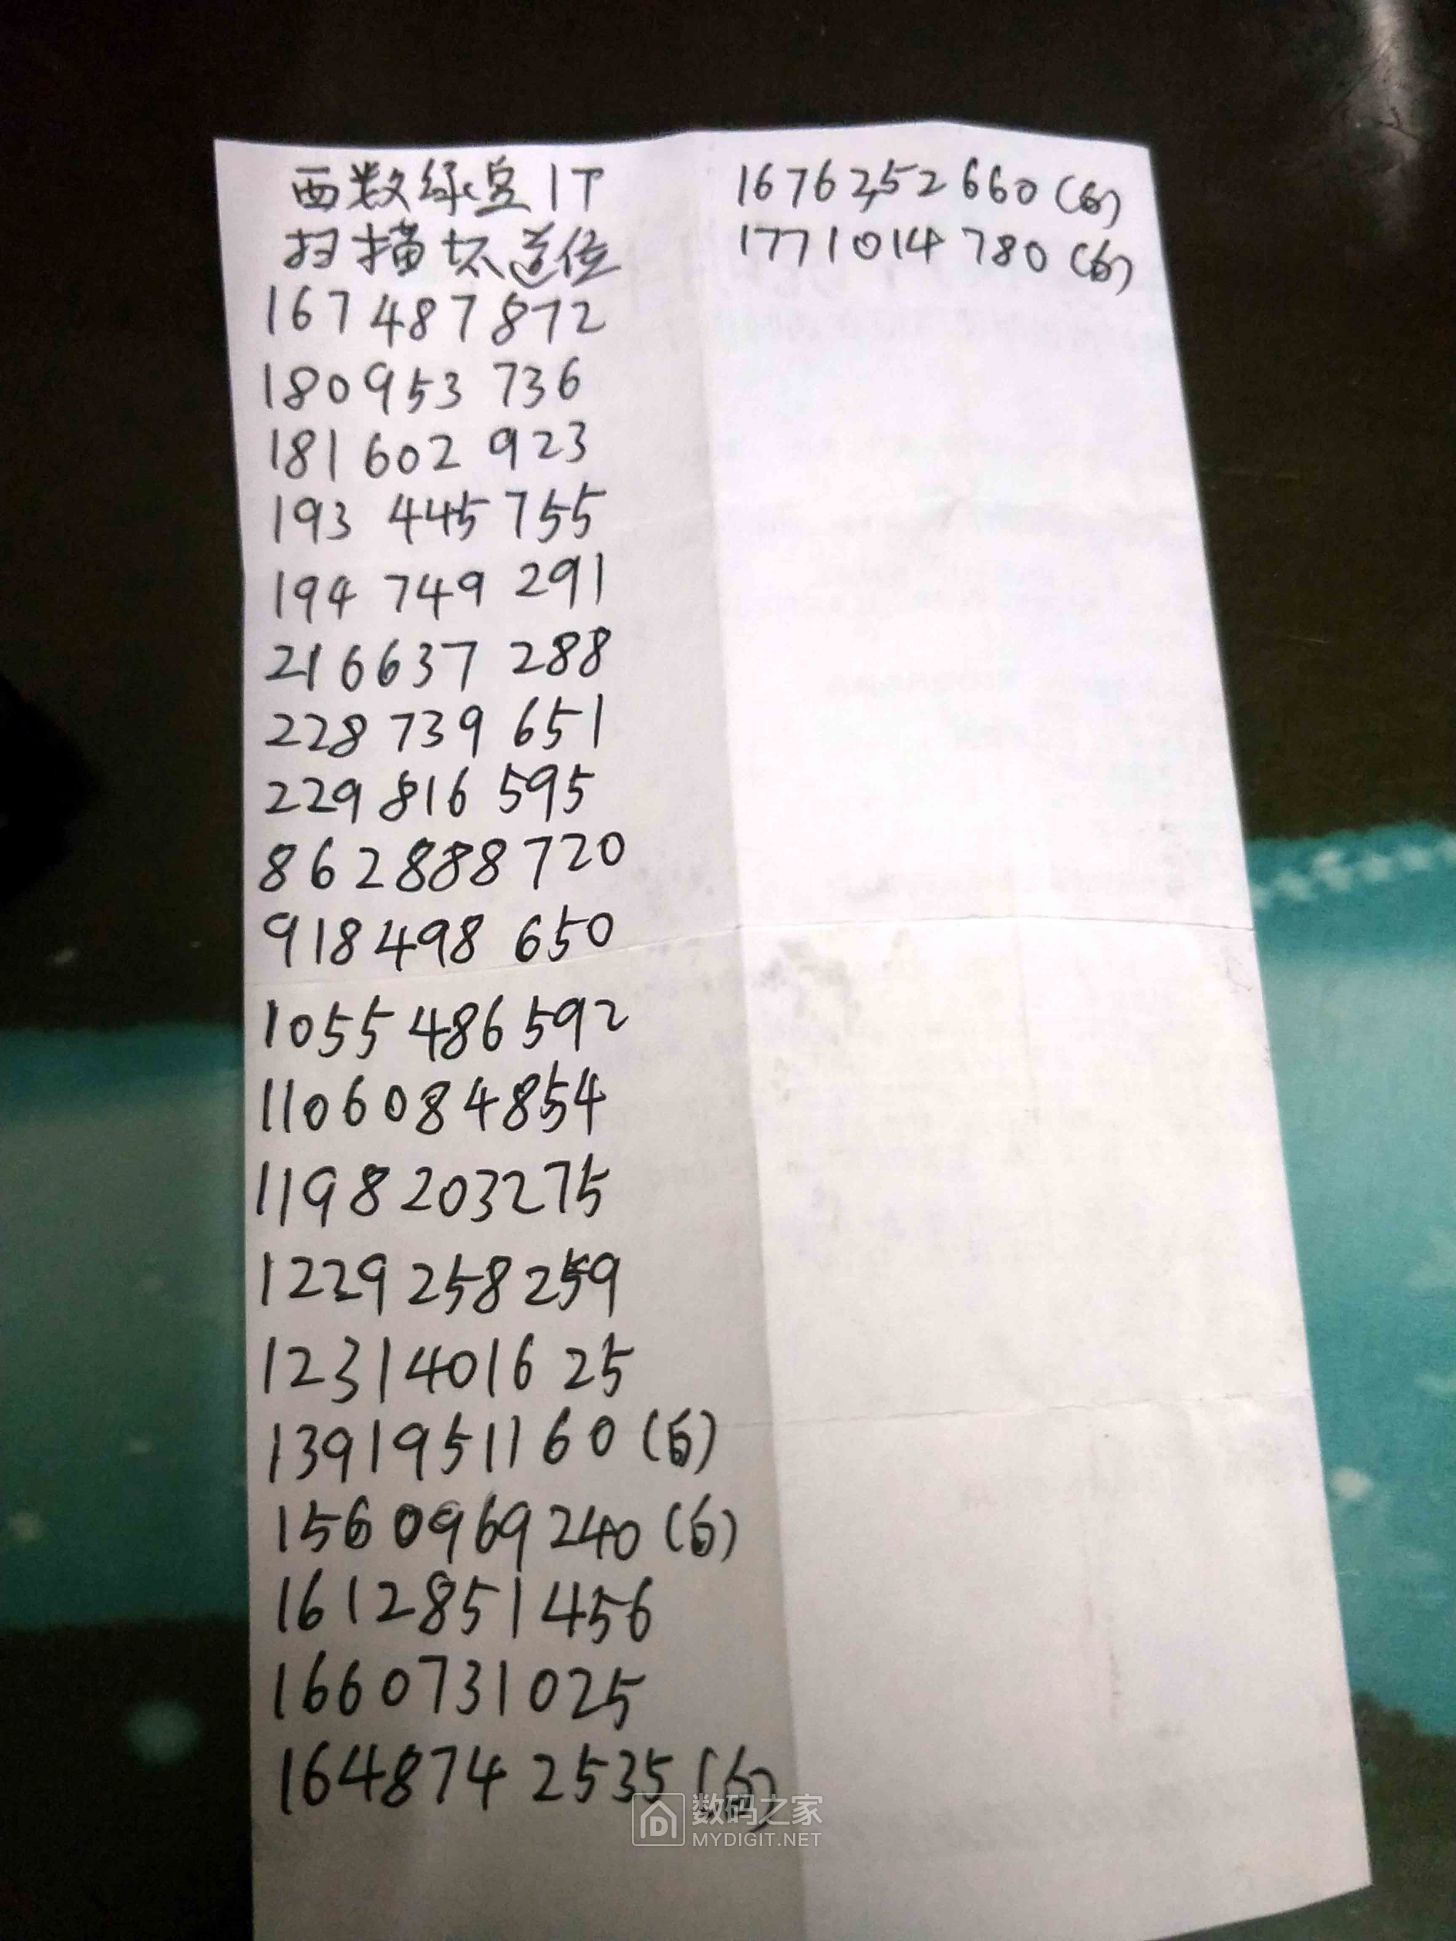 西数绿盘1T
扫描坏道位
167 487 872
180953 736
181 602 923
193 445 755
194 749 291
216637 288
228 739 651
229 816 595
862888720
918498 650
1055 486592
1106084854
1198203275
1229 258 259
1231401625
1391951160(6)
1560969240(6)
1612851456
1660731025
164874 2535(6)
1676252660(6)
1771014 780(6)
数码之家
MYDIGIT.NET